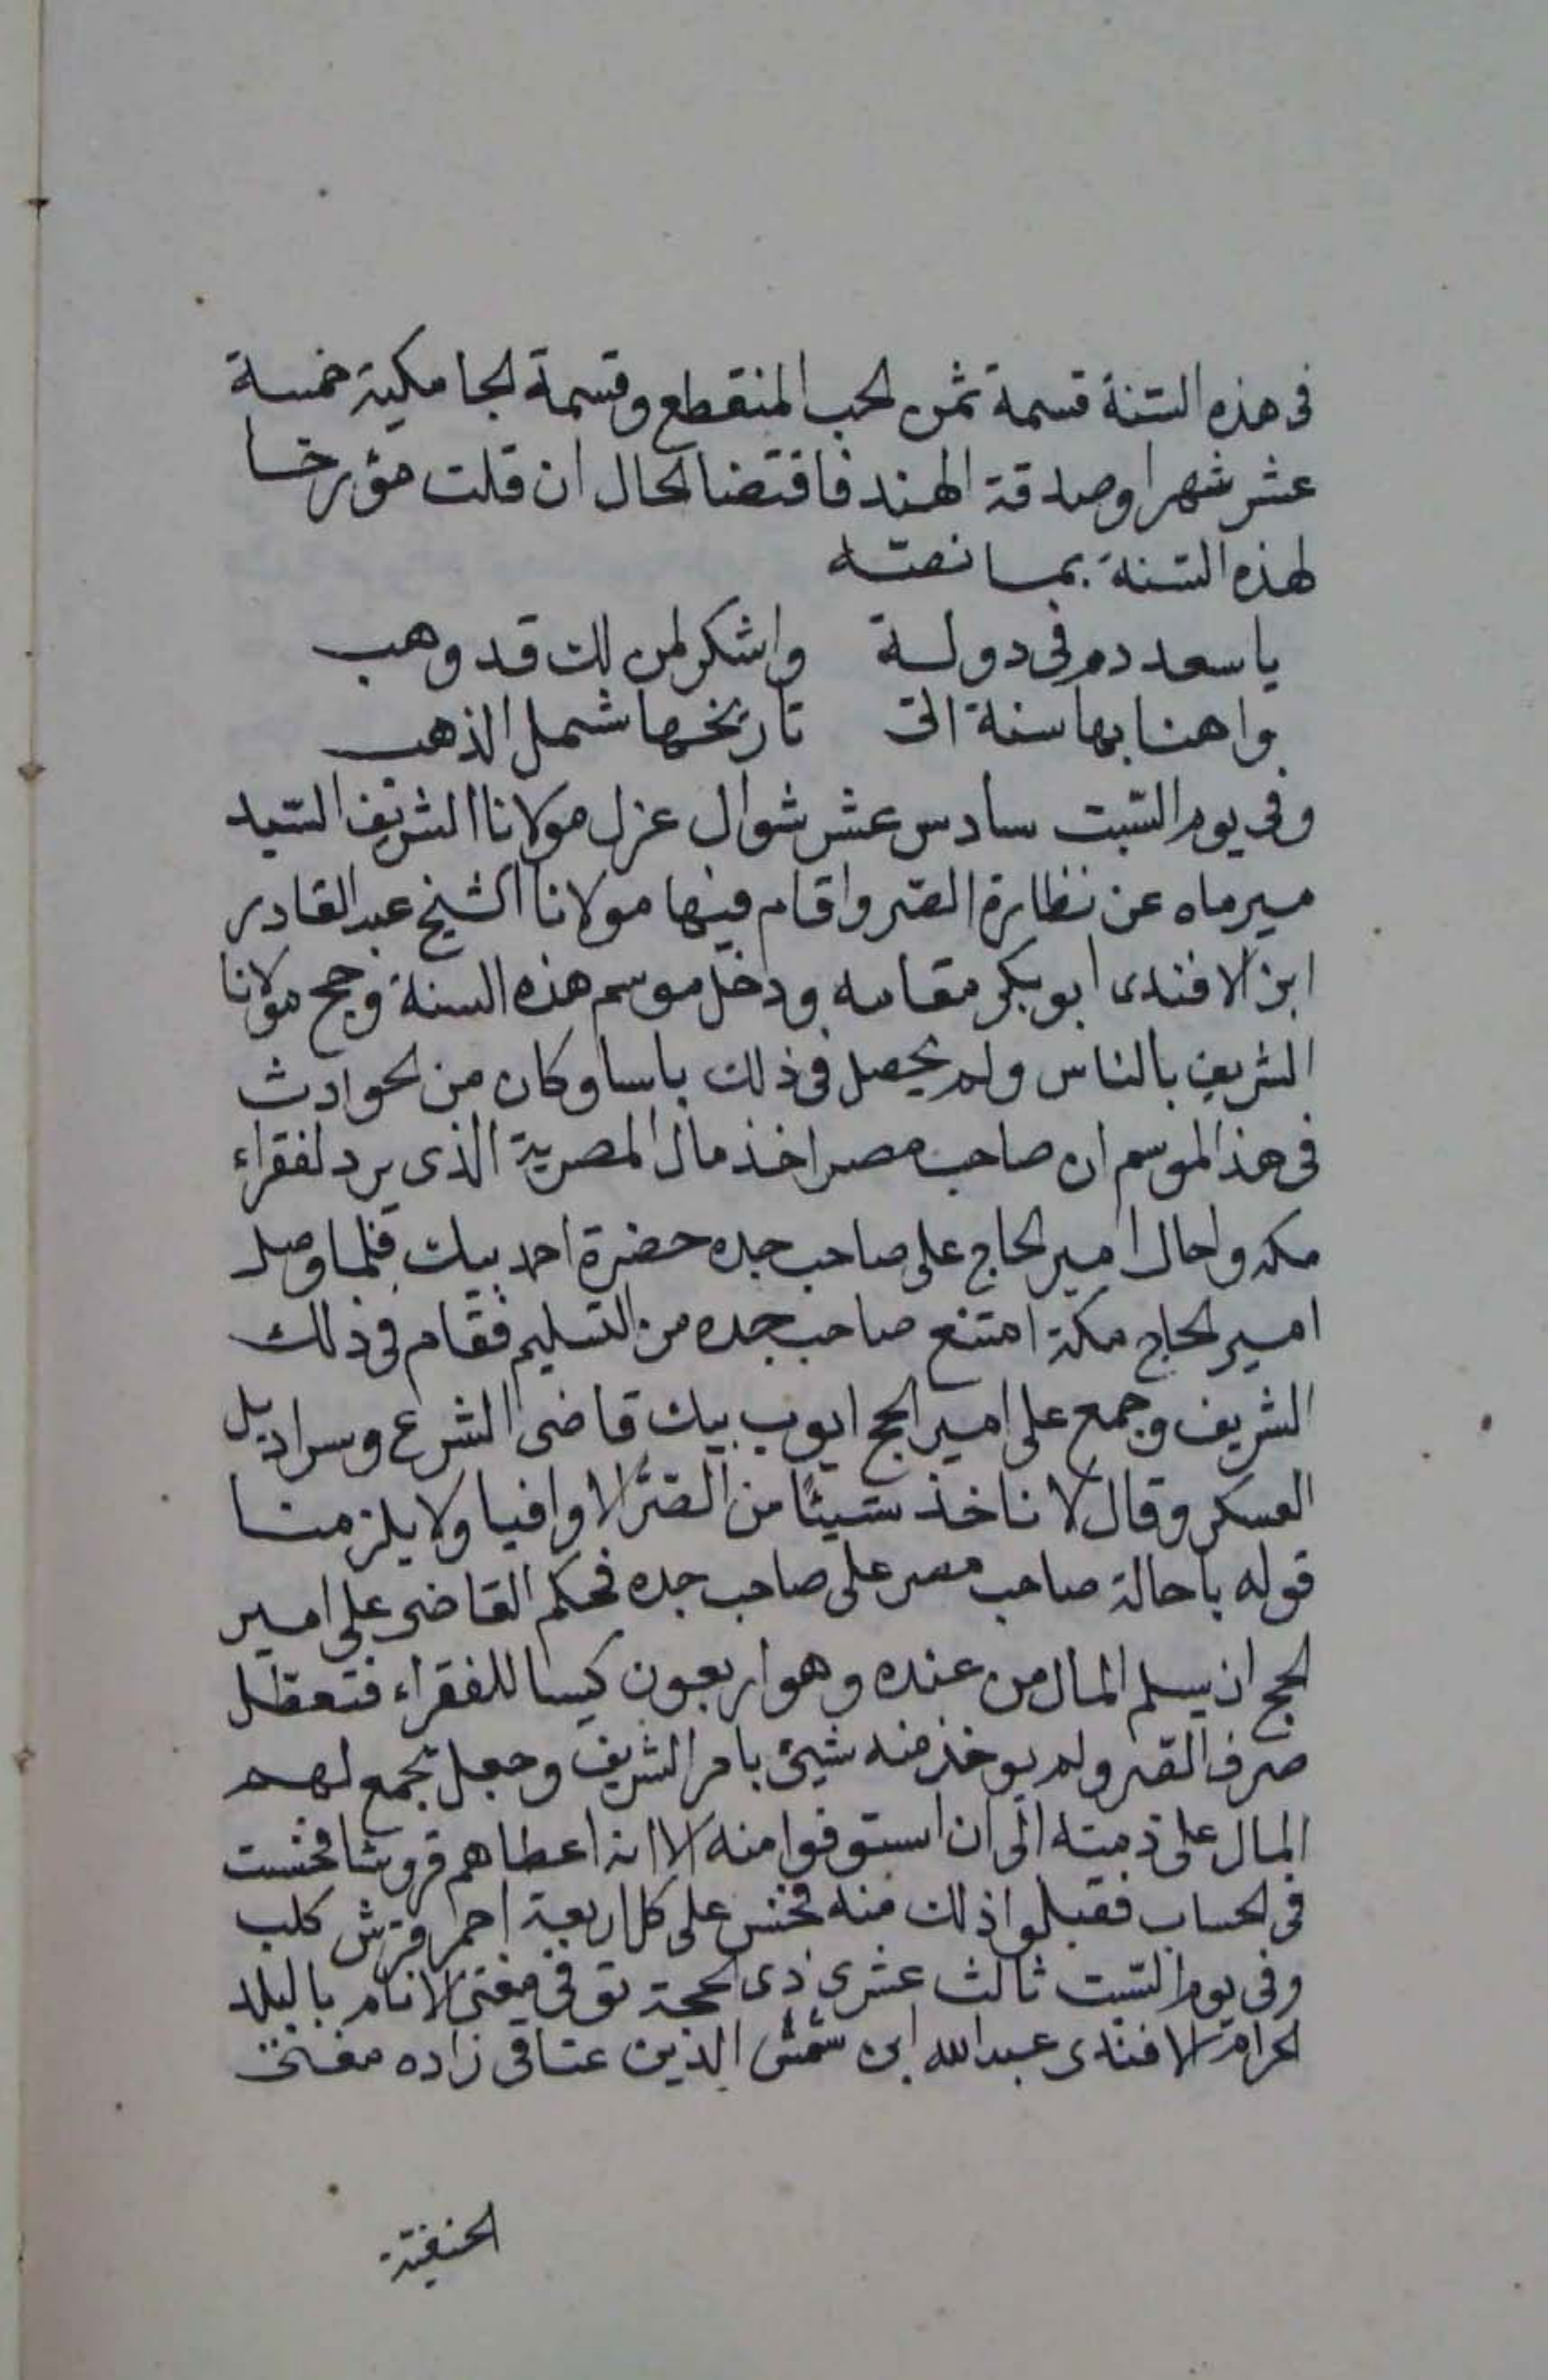 فى هذه السّنة قسمة ثمن الحب المنقطع وقسمة الجامكية خمسة
عشر شهرا وصدقة الهند فاقتضا الحال ان قلت مؤرخا
لهذه السّنة بما نصّه
يا سعد دم فى دولة واشكر لمن لك قد وهب
واهنا بها سنة اتى تاريخها شمل الذهب
وفى يوم السّبت سادس عشر شوال عزل مولانا الشريف السّيد
ميرماه عن نظارة الصّر واقام فيها مولانا الشيخ عبد القادر
ابن الافندى ابو بكر مقامه ودخل موسم هذه السنة وحج مولانا
الشريف بالناس ولم يحصل فى ذلك باسا وكان من الحوادث
فى هذا الموسم ان صاحب مصر اخذ مال المصرية الذى يرد لفقراء
مكه واحال امير الحاج على صاحب جده حضرة احمد بيك فلما وصل
امير الحاج مكة امتنع صاحب جده من التسليم فقام فى ذلك
الشريف وجمع على امير الحج ايوب بيك قاضى الشرع وسراديل
العسكر وقال لا ناخذ شيئًا من الصّر الا وافيا ولا يلزمنا
قوله باحالة صاحب مصر على صاحب جده فحكم القاضى على امير
الحج ان يسلم المال من عنده وهو اربعون كيسا للفقراء فتعطّل
صرف الصّر ولم يوخذ منه شيئ بامر الشريف وجعل يجمع لهم
المال على ذمته الى ان استوفوا منه الا انه اعطاهم قروشا فخست
فى الحساب فقبلوا ذلك منه فخس على كل اربعة احمر قرش كلب
وفى يوم السّبت ثالث عشرى ذى الحجة توفى مفتى الانام بالبلد
الحرام الافندى عبدالله ابن شمس الدين عتاقى زاده مفتى
الحنفيّة